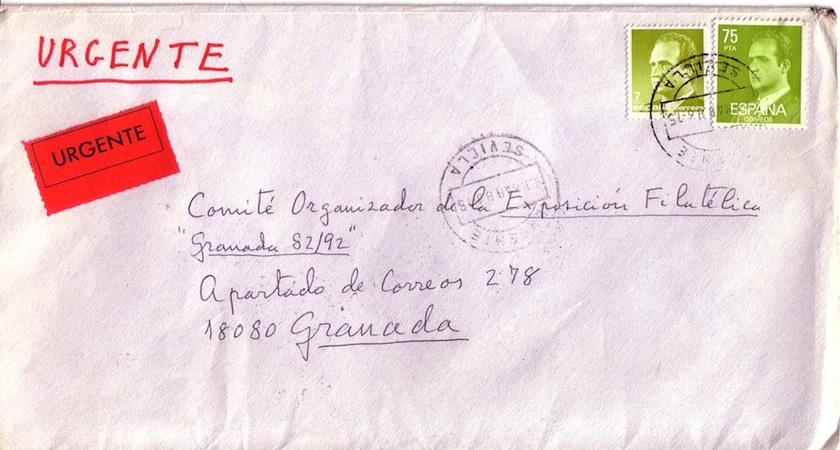 URGENTE
URGENTE
7
españa correos
75
PTA
ESPAÑA
CORREOS
SEVILLA
SEVILLA
Comité Organizador de la Exposición Filatélica
"Granada 82/92"
Apartado de Correos 278
18080 Granada